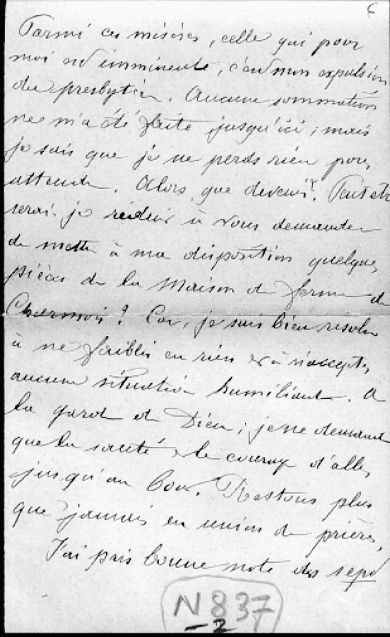 6
Parmi ces misères, celle qui pour
moi est imminente, c'est mon expulsion
du presbytère. Aucune sommation
ne m'a été faite jusqu'ici; mais
je sais que je ne perds rien pour
attendre. Alors, que devenir? Peut-être
serai-je réduit à vous demander
de mettre à ma disposition quelques
pièces de la maison de ferme de
Charmois? Car, je suis bien résolu
à ne faiblir en rien et à n'accepter
aucune situation humiliante. A
la garde de Dieu; je ne demande
que la santé et le courage d'aller
jusqu'au bout. Restons plus
que jamais en union de prières.
J'ai pris bonne note des sept
N 837
2